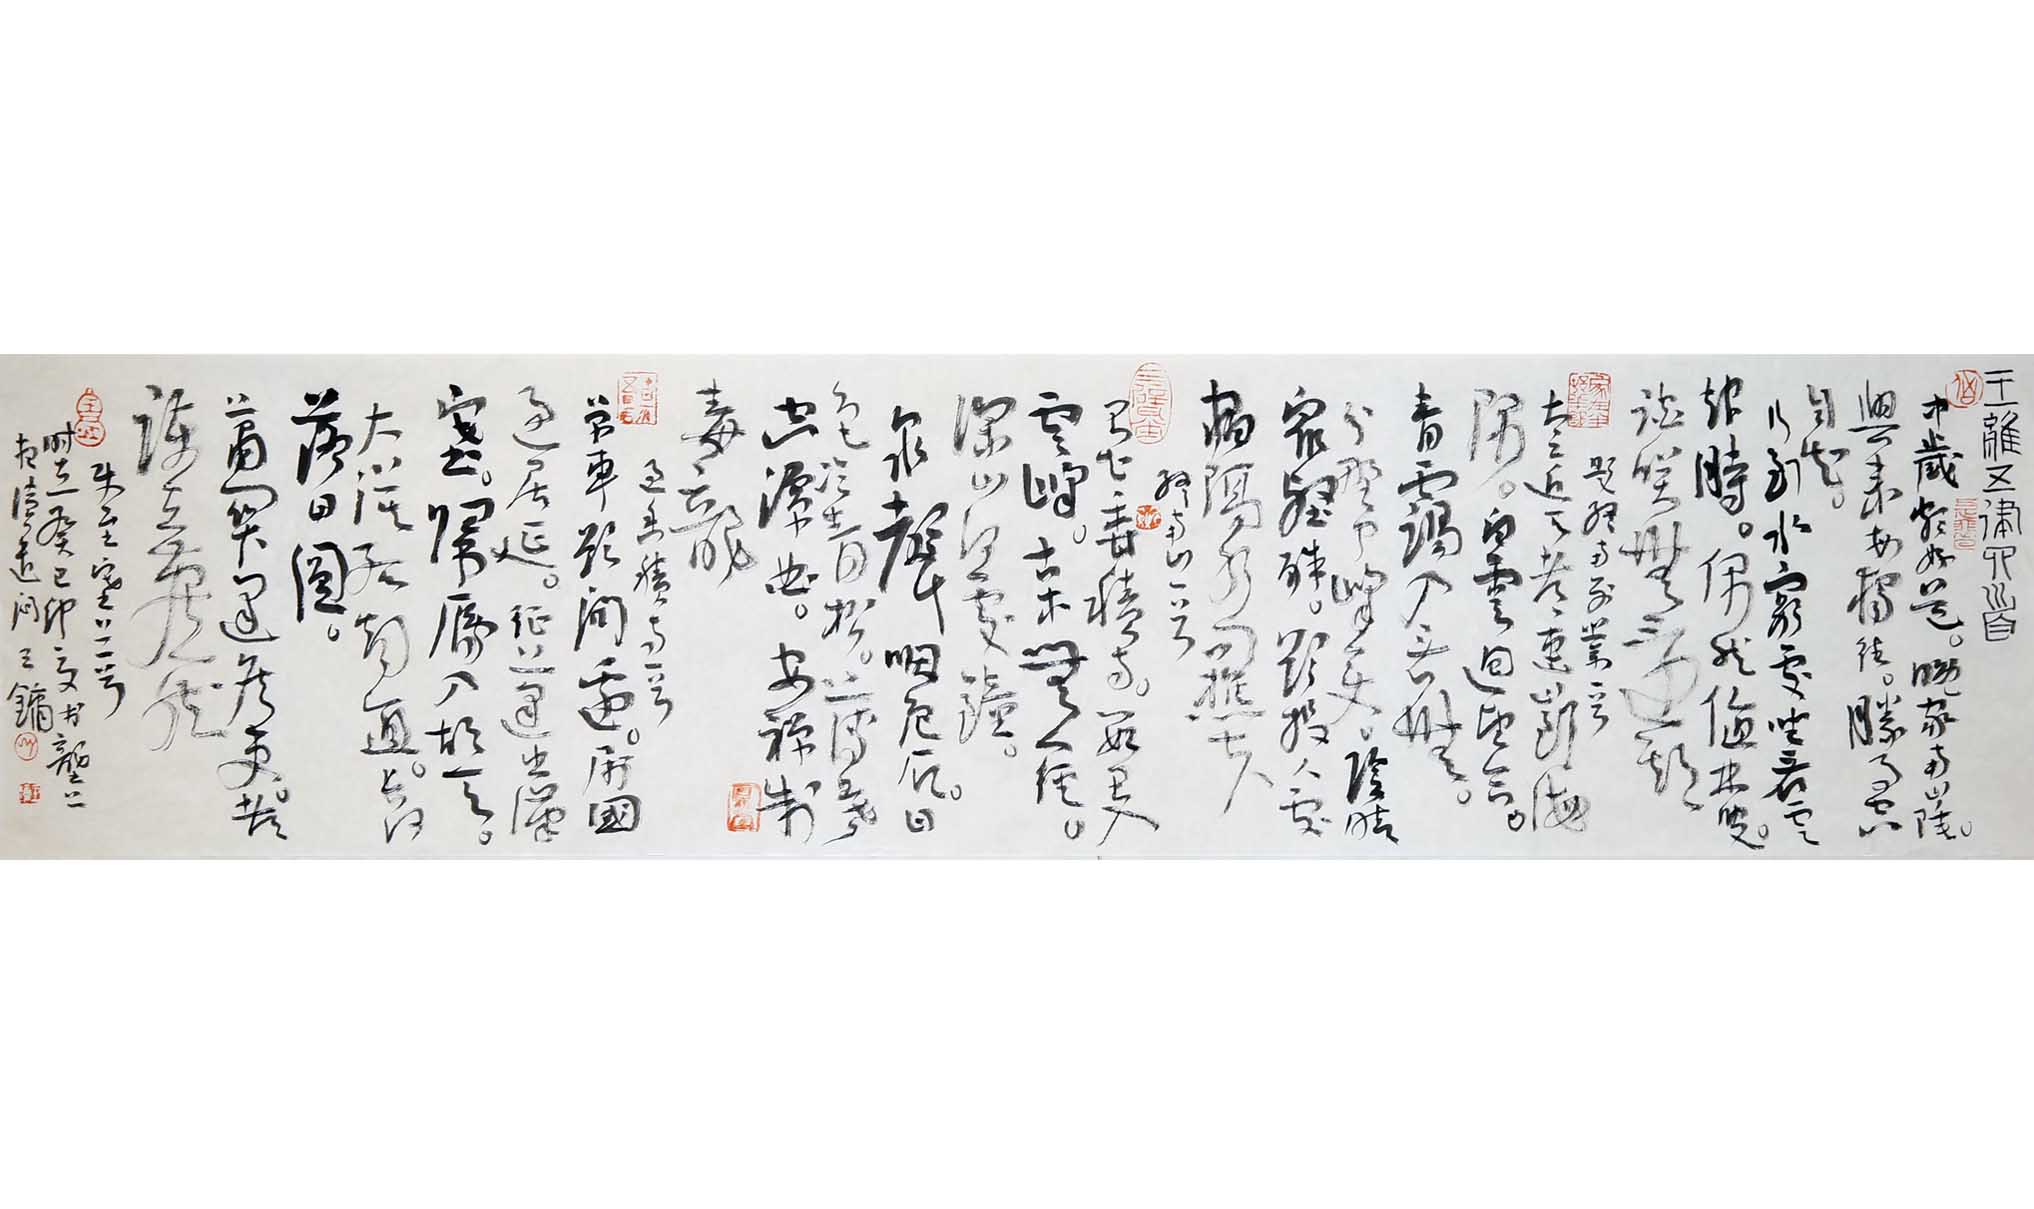 王維五律四首
中歲頗好道。晚家南山陲。
興來每獨往。勝事空
自知。
行到水窮處坐看雲
起時。偶然值林叟。
談笑無還期
題終南別業一首
太乙近天都連山到海
隅。白雲迴望合。
青靄入看無。
分野中峰變。陰晴
眾壑殊。欲投人處
宿隔水問樵夫
終南山一首
不知香積寺。數里入
雲峰。古木無人徑。
深山何處鐘。
泉聲咽危石。日
色冷青松。薄暮
空潭曲。安禪制
毒龍
過香積寺一首
單車欲問邊。屬國
過居延。征蓬出漢
塞。歸雁入胡天。
大漠孤煙直。長河
落日圓。
蕭關逢候吏。都
護在燕然
使至塞上一首
時在癸巳仲夏書
王鏞